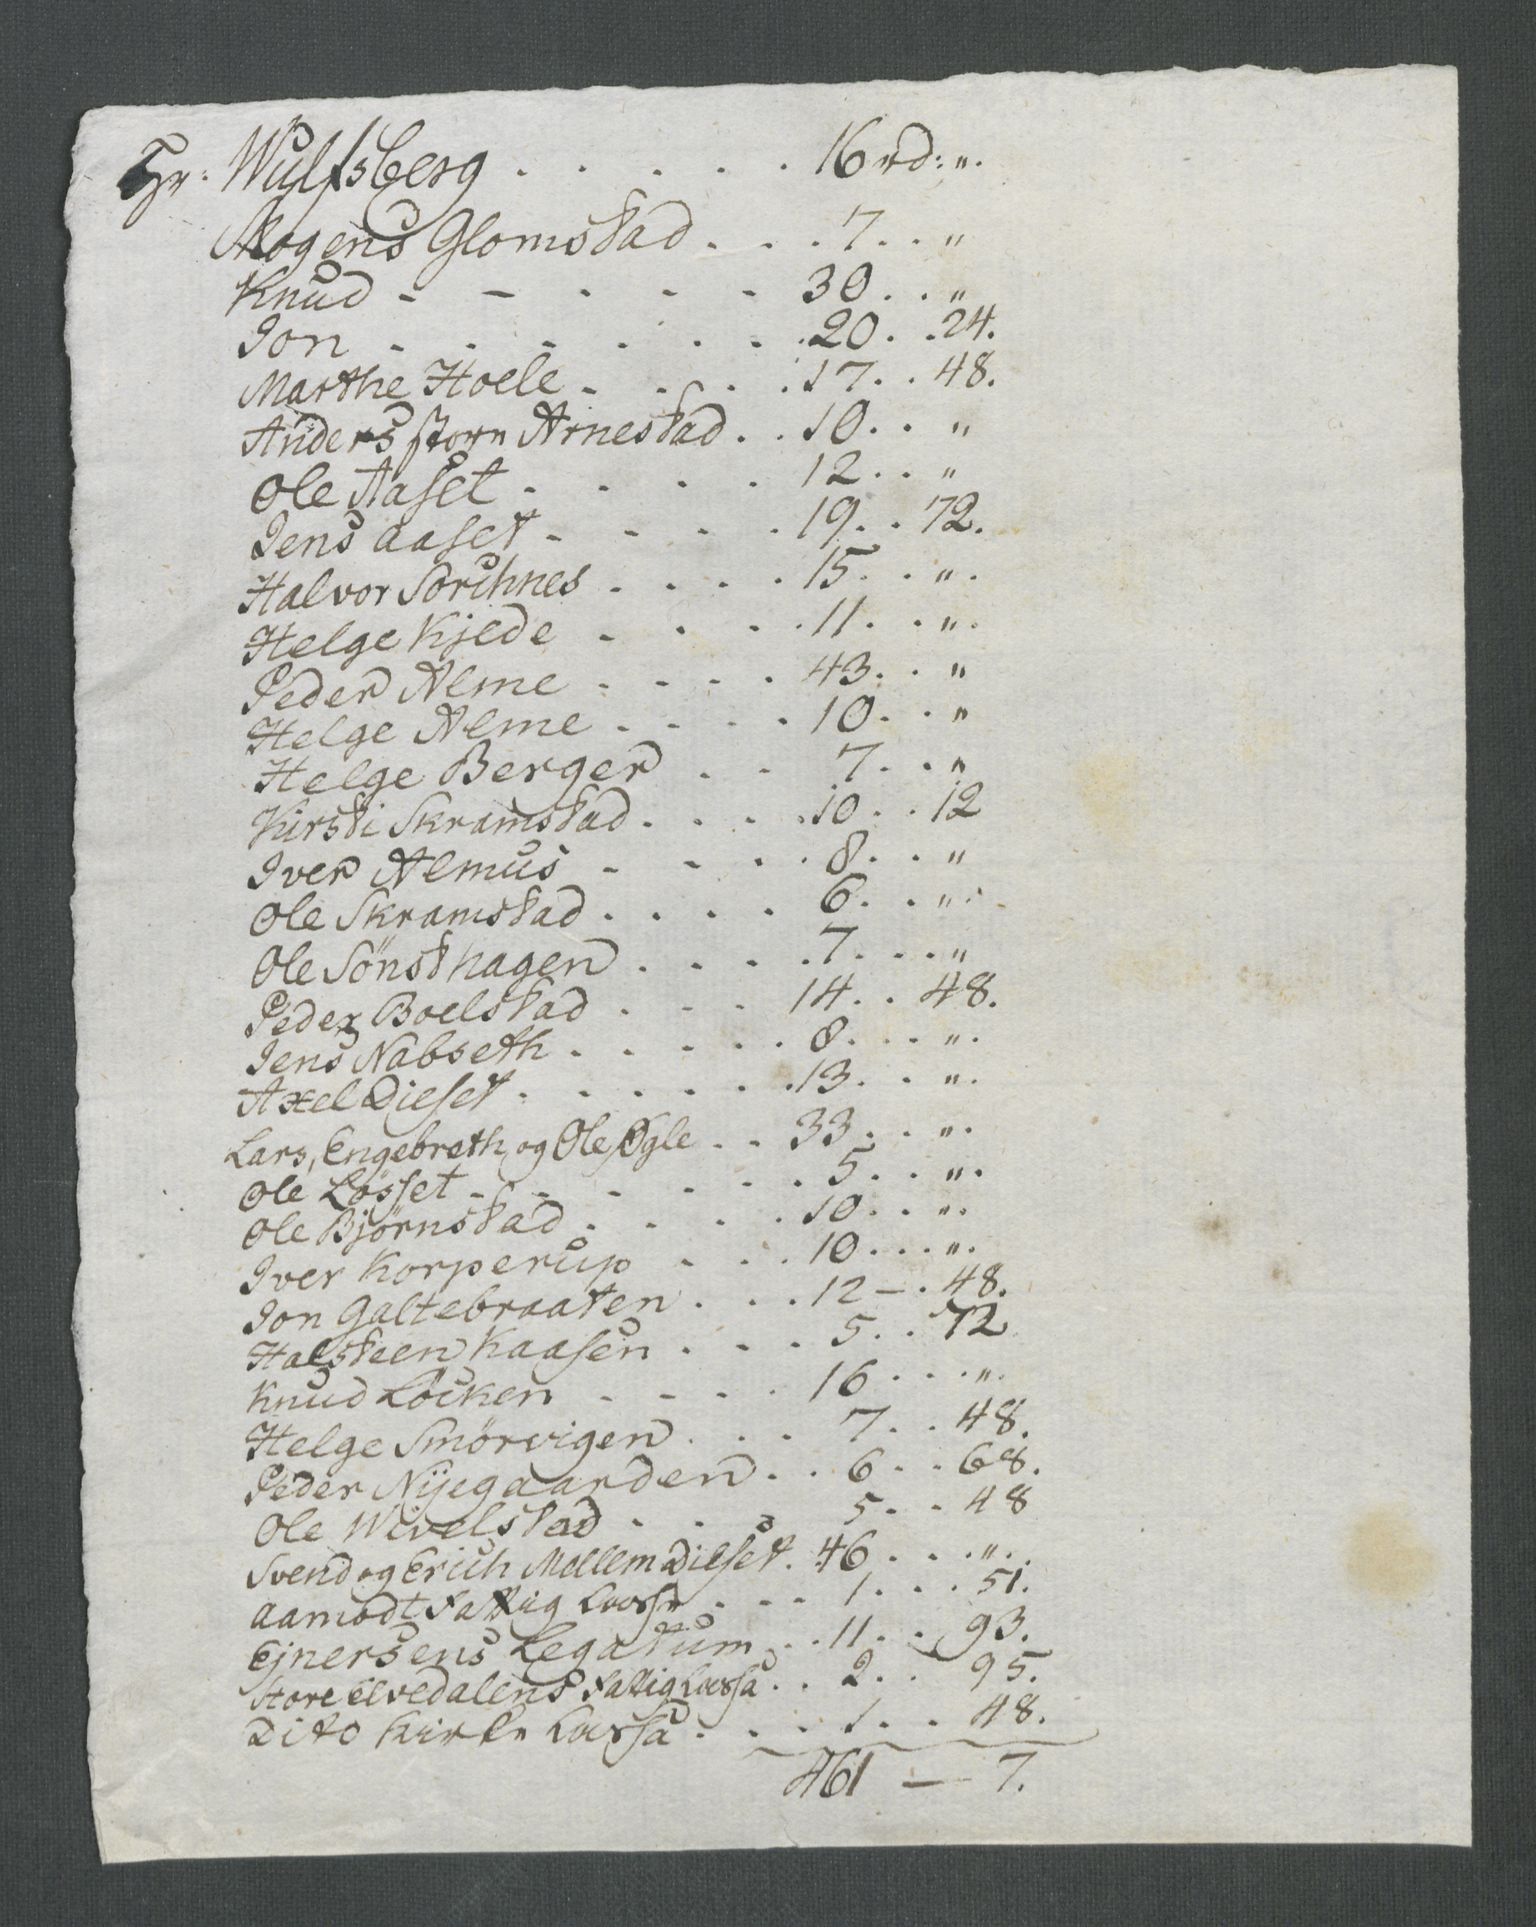 Hr. Wulfsberg . . . . . 16 rd: ".
Mogens Glomstad . . . 7 . . "
Knud - - . . - 30 . . "
Jon . . . . . . . 20 . . 24.
Marthe Hoele . . . . 17 . . 48.
Anders storn Arnestad . . 10 . . "
Ole Aaset . . . . 12 . . "
Jens aaset . . . . 19 . . 72.
Halvor Sorihnes . . . . 15 . . ".
Helge Kjede . . . . 11 . . ".
Peder Alme . . . . 43 . . "
Helge Alme . . . . 10 . . "
Helge Berger . . 7 . . "
Kirsti Skramstad . . . . 10 . . 12
Iver Almus . . . . 8 . . "
Ole Skramstad . . . . 6 . . ".
Ole Sönsthagen . . . . . 7 . . . "
Peder Boelstad . . . 14 . . 48.
Jens Nabseth . . . . . 8 . . . ".
Axel Dieset . . . . . . 13 . . ".
Lars, Engebreth og Ole Øgle . . 33 . . ".
Ole Lösset . . . . . . 5 . . ".
Ole Björnstad . . . . 10 . . ".
Iver Korperup . . . 10 . . . ".
Jon Galtebraaten . . . 12 - . 48.
Halsteen Kaasen . . . 5 . . 72
Knud Löcken . . . . 16 . . . ".
Helge Smörvigen . . . 7 . . 48.
Peder Nÿegaarden . . 6 . . 68.
Ole Wivelstad . . . . 5 . . 48
Svend og Erich Mellem Dieset . 46 . . . ". .
Aamodt Fattig Cassa . . . 1 . . . 51.
Ejnersens Legatum . . 11 . . 93.
Store Elvedalens Fattig Cassa . . 2 . . 95.
Dito Kirke Cassa . . . 1 . . 48.
461 — 7.